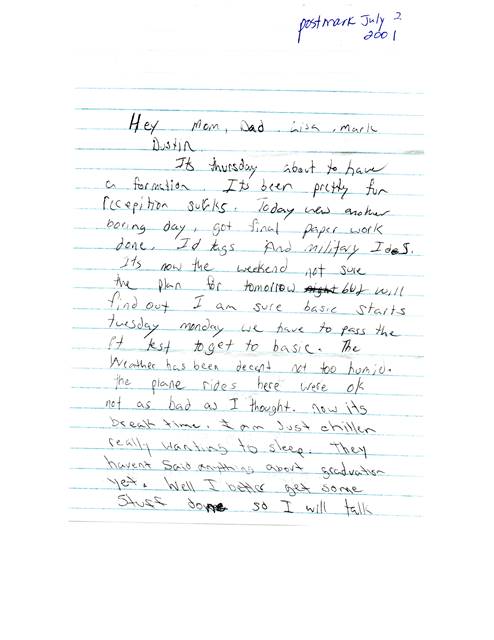 postmark July 2
2001
Hey Mom, Dad, Lisa, Mark
Dustin.
Its thursday about to have
a formation. Its been pretty fun
reception sucks. Today was another
boring day, got final paper work
done, Id tags And military Ids.
Its now the weekend not sure
the plan for tomorrow but will
find out I am sure basic starts
tuesday monday we have to pass the
Pt test to get to basic. The
Weather has been decent not too humid.
the plane rides here were ok
not as bad as I thought. now its
break time. I am Just chillen
really wanting to sleep. They
havent said anything about graduation
yet. Well I better get some
Stuff done so I will talk